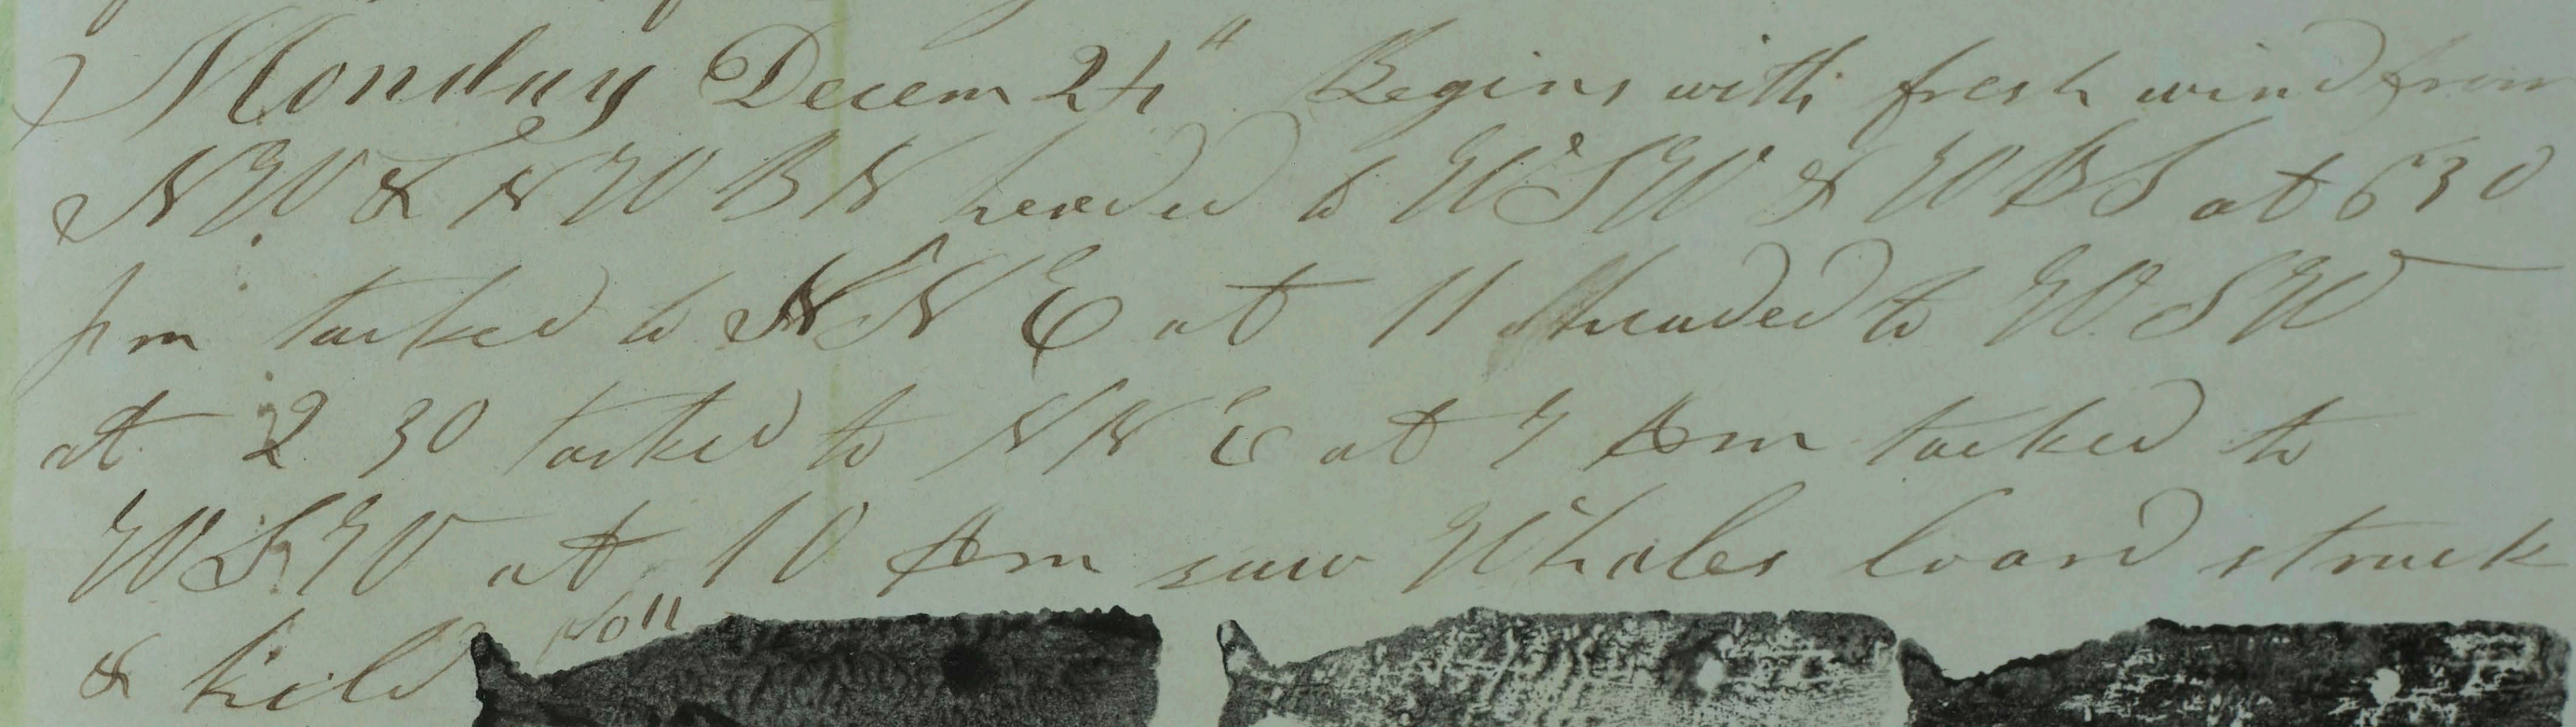 Monday Decem 24" Begins with fresh wind from
NW & NW B N headed to WSW & W B S at 6 30
pm tacked to NNE at 11 headed to WSW
at 2 30 tacked to NNE at 7 Am tacked to
WSW at 10 Am saw Whales loard struck
& kild No 11